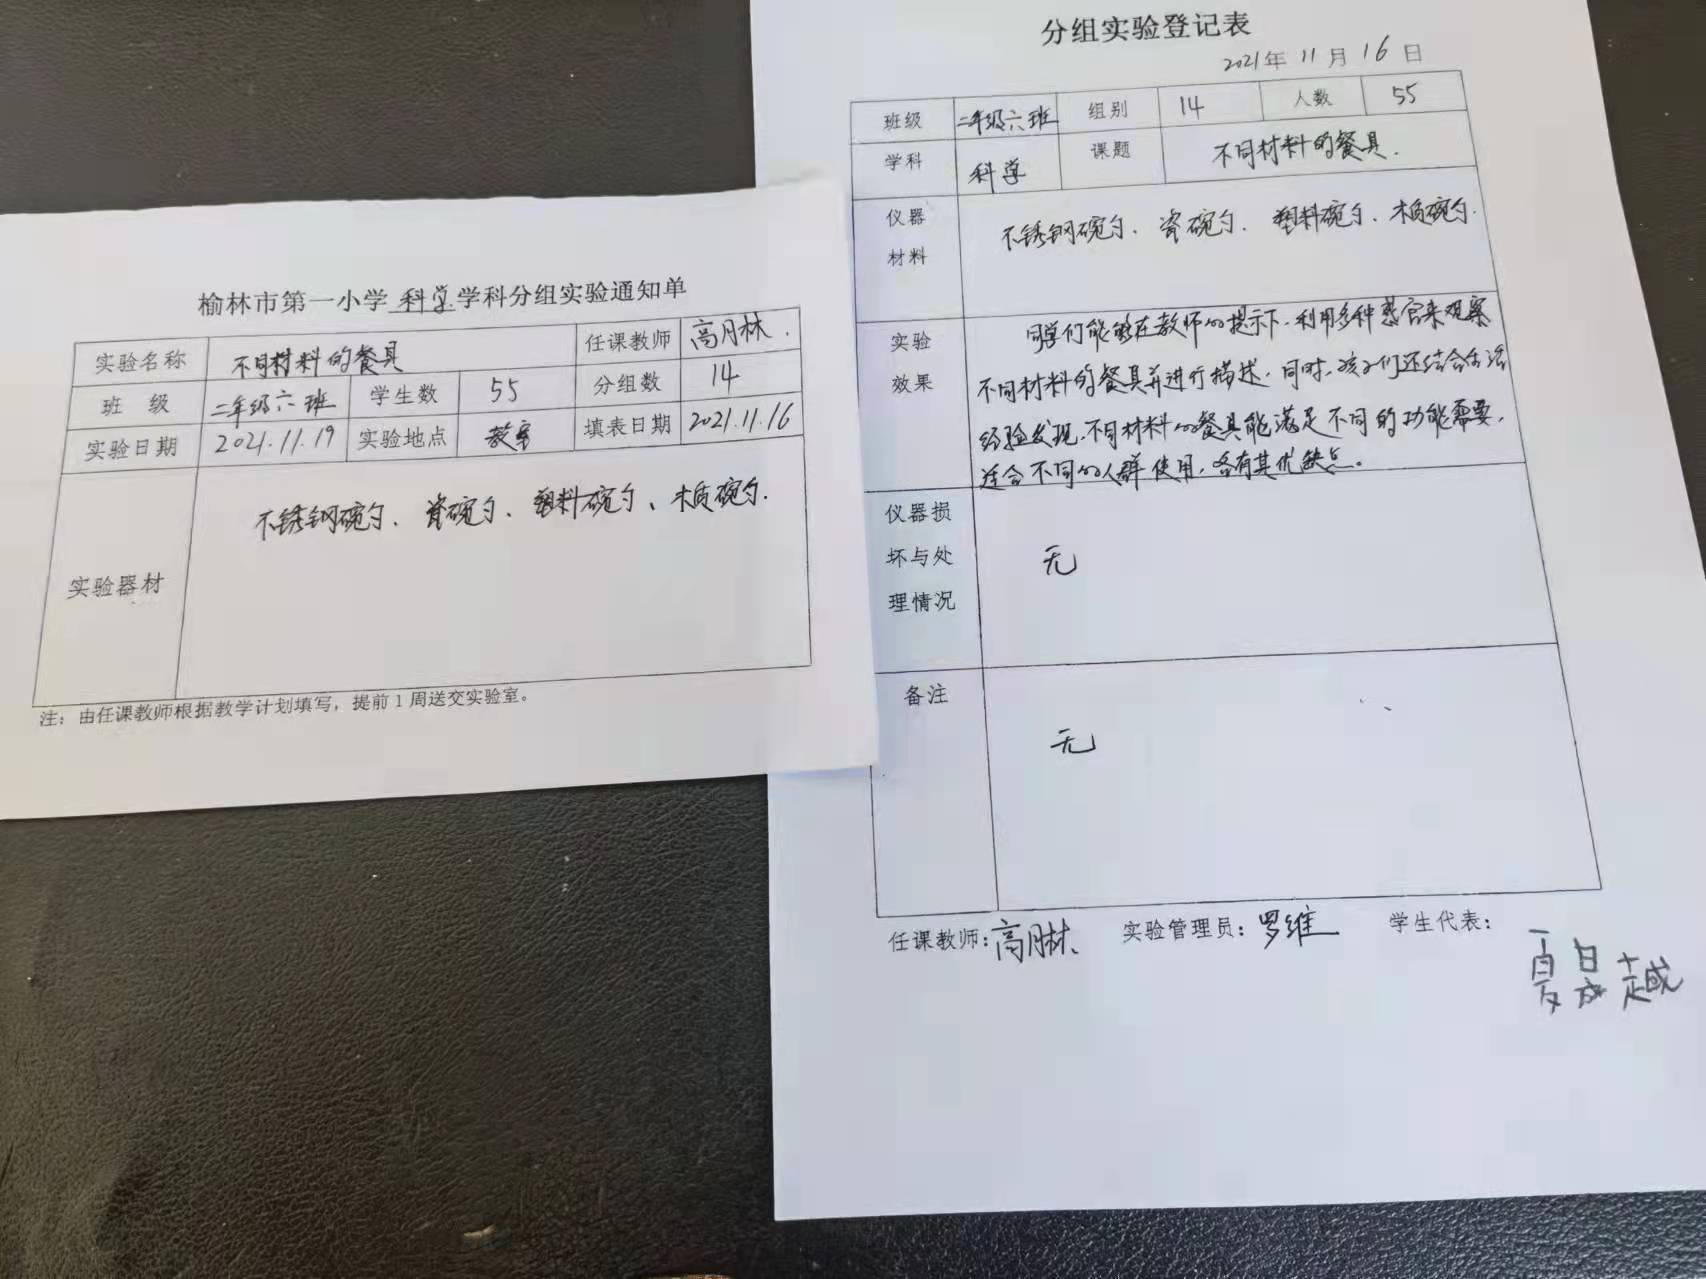 榆林市第一小学 科学 学科分组实验通知单
实验名称 不同材料的餐具 任课教师 高月林.
班 级 二年级六班 学生数 55 分组数 14
实验日期 2021.11.19 实验地点 教室 填表日期 2021.11.16
实验器材 不锈钢碗勺、瓷碗勺、塑料碗勺、木质碗勺.
注：由任课教师根据教学计划填写，提前1周送交实验室。
分组实验登记表
2021年 11 月 16 日
班级 二年级六班 组别 14 人数 55
学科 科学 课题 不同材料的餐具.
仪器
材料
不锈钢碗勺、瓷碗勺、塑料碗勺、木质碗勺.
实验
效果
同学们能够在教师的提示下,利用多种感官来观察
不同材料的餐具并进行描述,同时,孩子们还结合生活
经验发现,不同材料的餐具能满足不同的功能需要,
适合不同的人群使用,各有其优缺点。
仪器损
坏与处
理情况
无
备注
无
任课教师:高月林 实验管理员:罗维 学生代表:
夏晟越